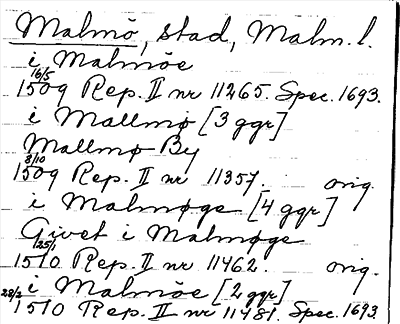 Malmö, stad, Malm. l.
i Malmöe
16/5 1509 Rep. II nr 11265. Spec. 1693.
i Mallmø [3 ggr]
Mallmø By
3/10 1509 Rep. II nr 11357. orig.
i Malmøge [4 ggr]
Givet i Malmøge
25/1 1510 Rep. II nr 11462. orig.
i Malmöe [2 ggr]
28/2 1510 Rep. II nr 11481. Spec. 1693